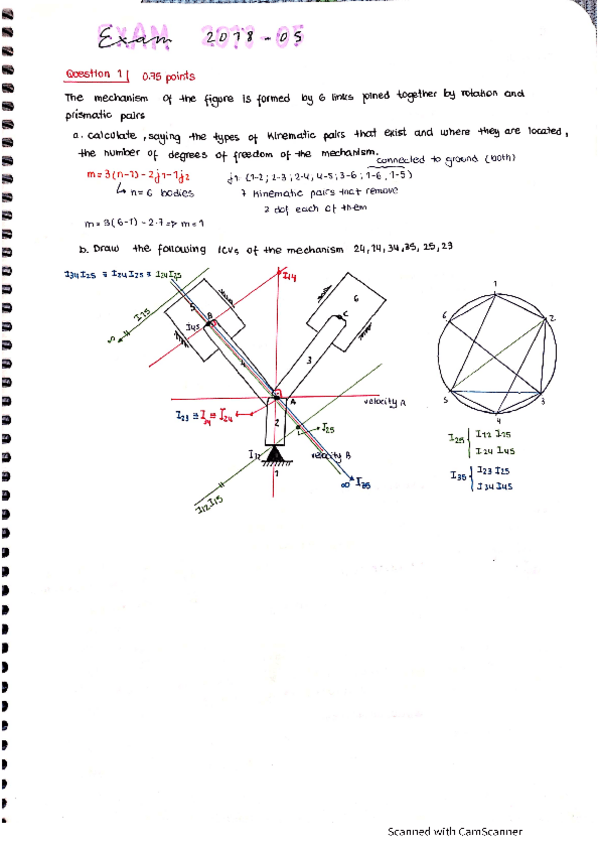 Exam 2018-05
Question 1 0.75 points
The mechanism of the figure is formed by 6 links joined together by rotation and
prismatic pairs
a. calculate, saying the types of kinematic pairs that exist and where they are located,
the number of degrees of freedom of the mechanism.
connected to ground (both)
m=3(n-1)-2j1-1j2
j1: (1-2; 2-3; 2-4, 4-5; 3-6; 1-6, 1-5)
n=6 bodies
7 kinematic pairs that remove
2 dof each of them
m=3(6-1)-2·7 => m=1
b. Draw the following ICVs of the mechanism 24, 14, 34, 35, 25, 23
I34I25 ≡ I24I25 ≡ I24I25
I14
I15
∞
5
B
I45
4
6
C
3
A
velocity A
I23 ≡ I34 ≡ I24
2
I25
I12
1
velocity B
∞ I35
I12I15
1
2
3
4
5
6
I25 { I12 I15
I24 I45
I35 { I23 I25
I34 I45
Scanned with CamScanner